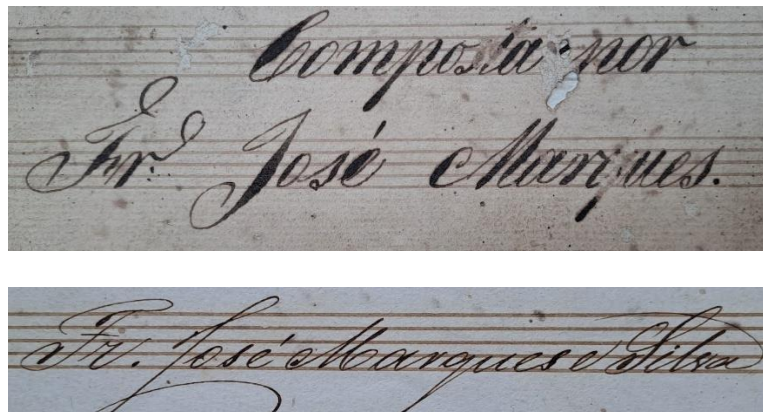 Composta por
Fr. José Marques.
Fr. José Marques e Silva